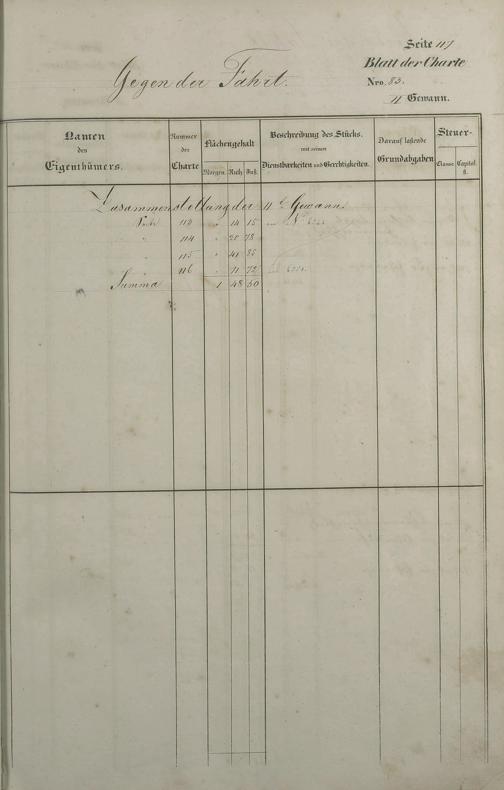 Seite 117
Blatt der Charte
Gegen der Fahrt.
Nro. 83.
11 Gewann.
Namen
den
Eigenthümers.
Nummer
der
Charte
Flächengehalt
Morgen Ruth. Fuß.
Beschreibung des Stücks.
mit seinen
Dienstbarkeiten und Gerechtigkeiten.
Darauf lastende
Grundabgaben
Steuer-
Classe Capital.
fl.
Zusammenstellung der 11 Gewann.
Seite 113 " 14 15
" 114 " 20 78
" 115 " 41 85
" 116 " 71 72
Summa 1 48 50